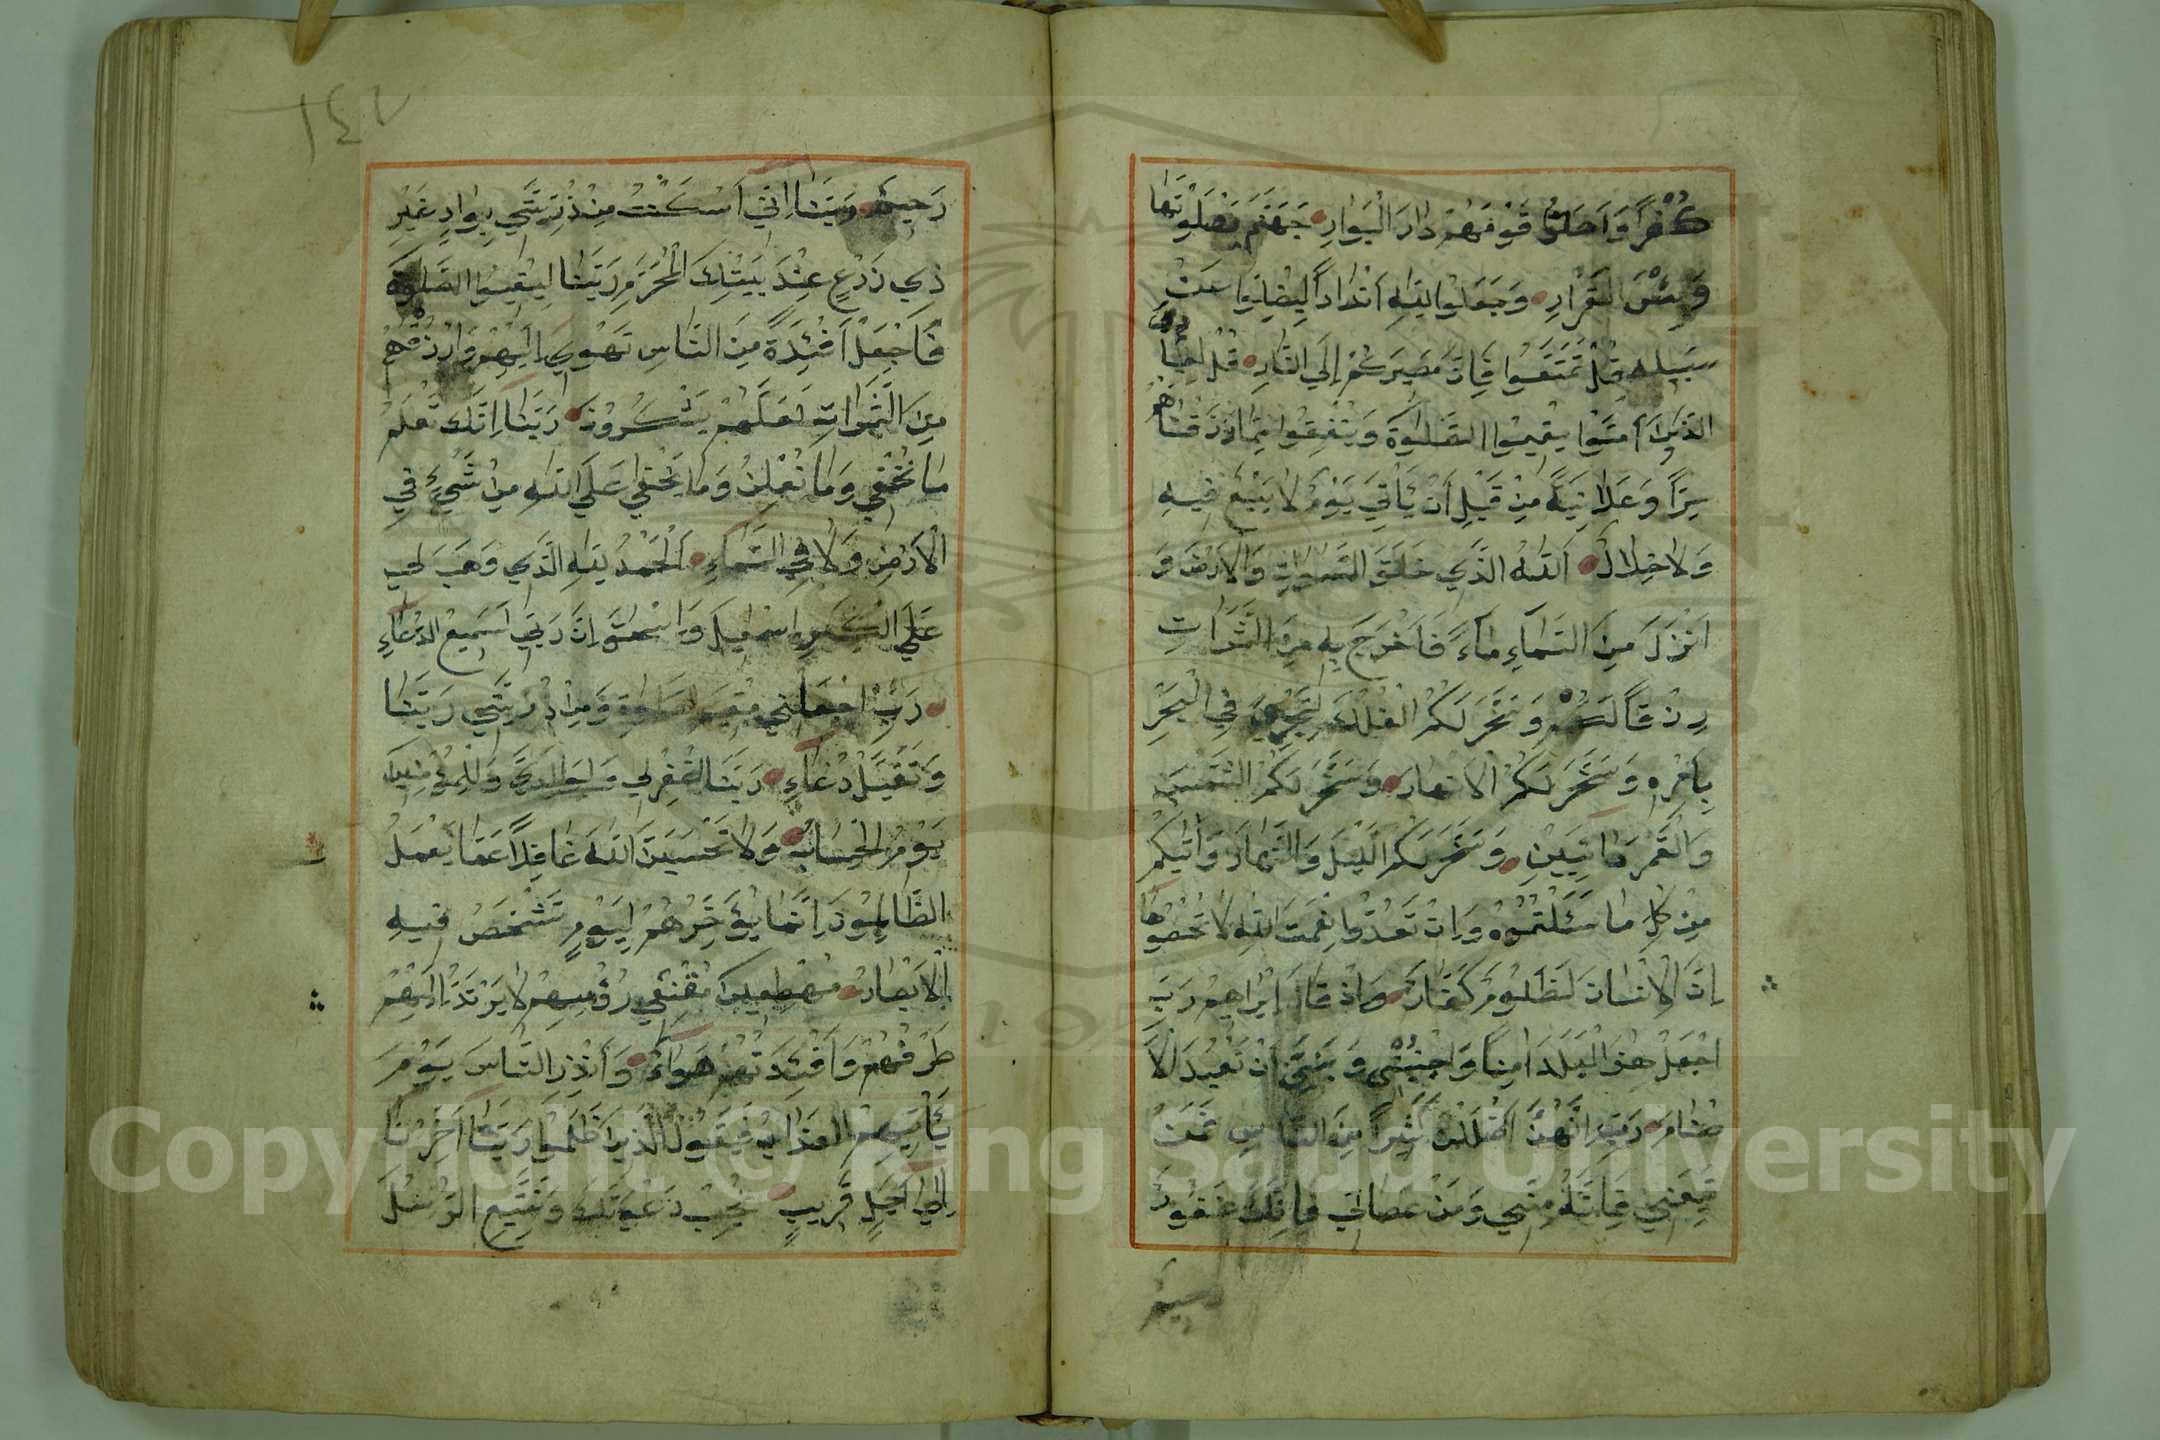 كُفْرًا وَاَحَلُّوا قَوْمَهُمْ دَارَ الْبَوَارِ جَهَنَّمَ يَصْلَوْنَهَا
وَبِئْسَ الْقَرَارِ وَجَعَلُوا لِلّٰهِ اَنْدَاداً لِيُضِلُّوا عَنْ
سَبِيلِهِ قُلْ تَمَتَّعُوا فَاِنَّ مَصِيرَكُمْ إِلَي النَّارِ قُلْ لِعِبَادِيَ
الَّذِينَ اٰمَنُوا يُقِيمُوا الصَّلٰوةَ وَيُنْفِقُوا مِمَّا رَزَقْنَاهُمْ
سِرّاً وَعَلَانِيَةً مِنْ قَبْلِ اَنْ يَأْتِيَ يَوْمٌ لَا بَيْعٌ فِيهِ
وَلَا خِلَالٌ اَللّٰهُ الَّذِي خَلَقَ السَّمٰوَاتِ وَالْاَرْضَ وَ
اَنْزَلَ مِنَ السَّمَاءِ مَاءً فَاَخْرَجَ بِهِ مِنَ الثَّمَرَاتِ
رِزْقاً لَكُمْ وَسَخَّرَ لَكُمُ الْفُلْكَ لِتَجْرِيَ فِي الْبَحْرِ
بِاَمْرِهِ وَسَخَّرَ لَكُمُ الْاَنْهَارَ وَسَخَّرَ لَكُمُ الشَّمْسَ
وَالْقَمَرَ دَائِبَيْنِ وَسَخَّرَ لَكُمُ الَّيْلَ وَالنَّهَارَ وَاٰتٰيكُمْ
مِنْ كُلِّ مَا سَئَلْتُمُوهُ وَاِنْ تَعُدُّوا نِعْمَتَ اللّٰهِ لَا تُحْصُوهَا
اِنَّ الْاِنْسَانَ لَظَلُومٌ كَفَّارٌ وَاِذْ قَالَ اِبْرَاهِيمُ رَبِّ
اجْعَلْ هٰذَا الْبَلَدَ اٰمِناً وَاجْنُبْنِي وَبَنِيَّ اَنْ نَعْبُدَ الْاَ
صْنَامَ رَبِّ اِنَّهُنَّ اَضْلَلْنَ كَثِيراً مِنَ النَّاسِ فَمَنْ
تَبِعَنِي فَاِنَّهُ مِنِّي وَمَنْ عَصَانِي فَاِنَّكَ غَفُورٌ
رحيم
١٤٧
رَحِيمٌ رَبَّنَا اِنِّي اَسْكَنْتُ مِنْ ذُرِّيَّتِي بِوَادٍ غَيْرِ
ذِي زَرْعٍ عِنْدَ بَيْتِكَ الْمُحَرَّمِ رَبَّنَا لِيُقِيمُوا الصَّلٰوةَ
فَاجْعَلْ اَفْئِدَةً مِنَ النَّاسِ تَهْوِي اِلَيْهِمْ وَارْزُقْهُمْ
مِنَ الثَّمَرَاتِ لَعَلَّهُمْ يَشْكُرُونَ رَبَّنَا اِنَّكَ تَعْلَمُ
مَا نُخْفِي وَمَا نُعْلِنُ وَمَا يَخْفٰي عَلَي اللّٰهِ مِنْ شَيْءٍ فِي
الْاَرْضِ وَلَا فِي السَّمَاءِ اَلْحَمْدُ لِلّٰهِ الَّذِي وَهَبَ لِي
عَلَي الْكِبَرِ اِسْمٰعِيلَ وَاِسْحٰقَ اِنَّ رَبِّي لَسَمِيعُ الدُّعَاءِ
رَبِّ اجْعَلْنِي مُقِيمَ الصَّلٰوةِ وَمِنْ ذُرِّيَّتِي رَبَّنَا
وَتَقَبَّلْ دُعَاءِ رَبَّنَا اغْفِرْلِي وَلِوَالِدَيَّ وَلِلْمُؤْمِنِينَ
يَوْمَ الْحِسَابُ وَلَا تَحْسَبَنَّ اللّٰهَ غَافِلاً عَمَّا يَعْمَلُ
الظَّالِمُونَ اِنَّمَا يُؤَخِّرُهُمْ لِيَوْمٍ تَشْخَصُ فِيهِ
الْاَبْصَارُ مُهْطِعِينَ مُقْنِعِي رُؤُسِهِمْ لَا يَرْتَدُّ اِلَيْهِمْ
طَرْفُهُمْ وَاَفْئِدَتُهُمْ هَوَاءٌ وَاَنْذِرِ النَّاسَ يَوْمَ
يَأْتِيهِمُ الْعَذَابُ فَيَقُولُ الَّذِينَ ظَلَمُوا رَبَّنَا اَخِّرْنَا
اِلٰي اَجَلٍ قَرِيبٍ نُجِبْ دَعْوَتَكَ وَنَتَّبِعِ الرُّسُلَ
Copyright © King Saud University